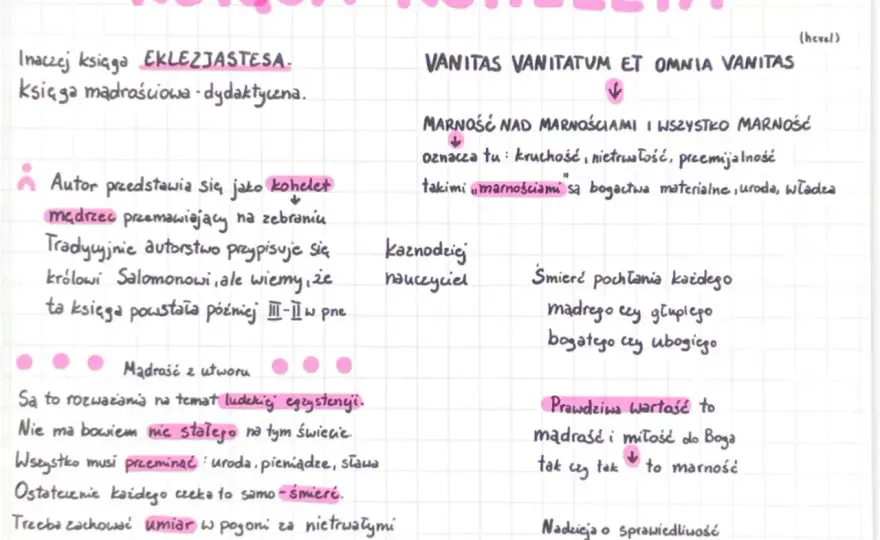 KSIĘGA KOHELETA
Inaczej księga EKLEZJASTESA.
księga mądrościowa - dydaktyczna.
Autor przedstawia się jako kohelet
mędrzec przemawiający na zebraniu
Tradycyjnie autorstwo przypisuje się
królowi Salomonowi, ale wiemy, że
ta księga powstała później III-II w pne
kaznodziej
nauczyciel
Mądrość z utworu
Są to rozważania na temat ludzkiej egzystencji.
Nie ma bowiem nic stałego na tym świecie
Wszystko musi przeminąć : uroda, pieniądze, sława
Ostatecznie każdego czeka to samo - śmierć.
Trzeba zachować umiar w pogoni za nietrwałymi
(hevel)
VANITAS VANITATUM ET OMNIA VANITAS
MARNOŚĆ NAD MARNOŚCIAMI I WSZYSTKO MARNOŚĆ
oznacza tu : kruchość, nietrwałość, przemijalność
takimi „marnościami" są bogactwa materialne, uroda, władza
Śmierć pochłania każdego
mądrego czy głupiego
bogatego czy ubogiego
Prawdziwa wartość to
mądrość i miłość do Boga
tak czy tak to marność
Nadzieja o sprawiedliwość